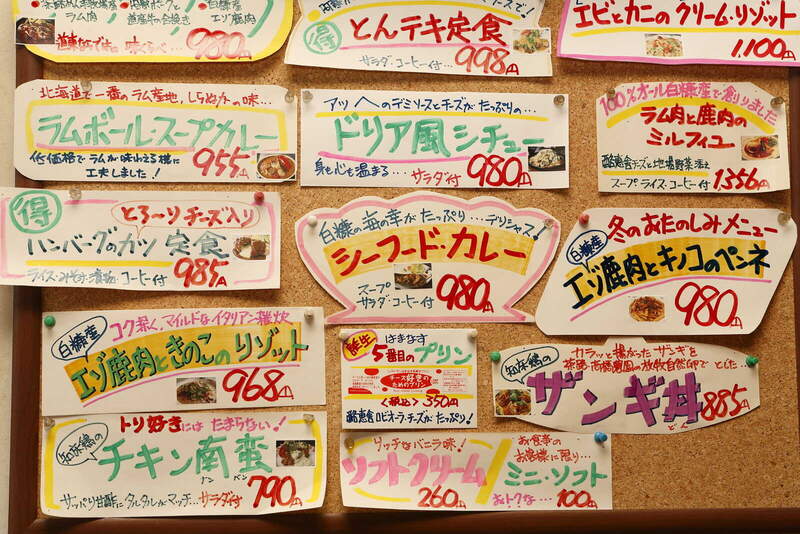 道東ならでは味くらべ… 980円
白糠産
エゾ鹿肉
得
とんテキ定食
サラダ・コーヒー付 998円
エビとカニのクリーム・リゾット
1,100円
北海道で一番のラム産地、しらぬかの味…
ラムボール・スープカレー
低価格でラムが味わえる様に
工夫しました! 955円
アツアツのデミソースとチーズがたっぷりの…
ドリア風シチュー
身も心も温まる… サラダ付 980円
100%オール白糠産で創りました
ラム肉と鹿肉の
ミルフィユ
酪恵舎チーズと地場野菜添え
スープ ライス・コーヒー付 1,356円
得
とろ〜りチーズ入り
ハンバーグのカツ定食
ライス・みそ汁・漬物・コーヒー付 985円
白糠の海の幸がたっぷり…デリシャス!
シーフード・カレー
スープ
サラダ・コーヒー付 980円
冬のおたのしみメニュー
白糠産
エゾ鹿肉とキノコのペンネ
980円
白糠産
コク深く、マイルドなイタリアン雑炊
エゾ鹿肉ときのこのリゾット
968円
誕生
はまなす
5番目のプリン
チーズ好きの
ためのプリン
<税込> 350円
酪恵舎ロビオーラ・チーズがたっぷり!
知床鶏の
カラッと揚がったザンギを
茶路・高橋農園の放牧自然卵でとじた…
ザンギ丼 885円
どん
トリ好きにはたまらない!
知床鶏の
チキン南蛮
ナン バン
サッパリ甘酢にタルタルがマッチ…サラダ付 790円
リッチなバニラ味!
ソフトクリーム
260円
お食事の
お客様に限り…
ミニ・ソフト
おトクな… 100円